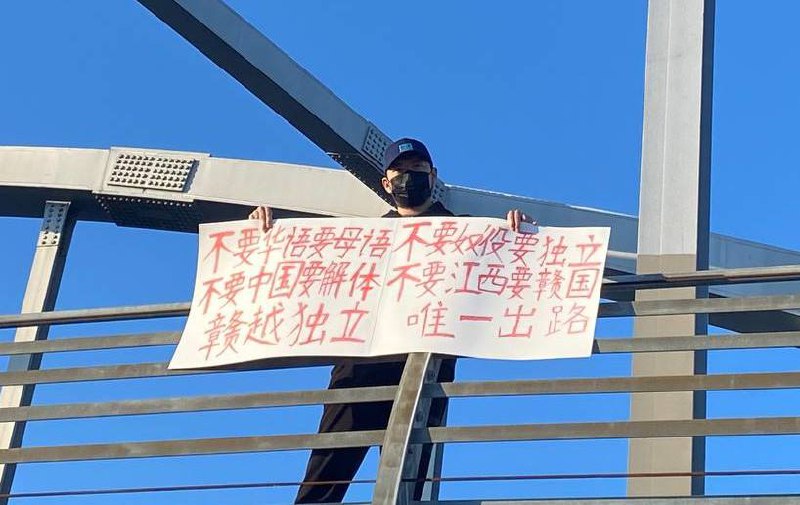 不要华语要母语 不要奴役要独立
不要中国要解体 不要江西要赣国
赣越独立 唯一出路